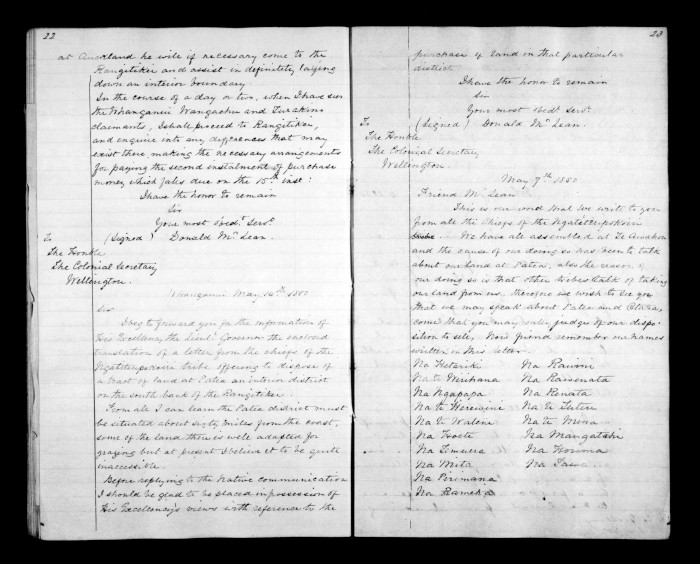 22
at Auckland he will if necessary come to the
Rangitikei and assist in definitely laying
down an interior boundary
In the course of a day or two, when I have seen
the Whanganui Wangaehu and Turakina
claimants, I shall proceed to Rangitikei,
and enquire into any differences that may
exist there making the necessary arrangements
for paying the second instalment of purchase
money which falls due on the 15th inst:
I have the honor to remain
Sir
Your most obedt. Servt.
To (Signed) Donald McLean.
The Honble
The Colonial Secretary
Wellington.
Whanganui May 14th 1850
Sir
I beg to forward you for the information of
His Excellency, the Lieut. Governor the enclosed
translation of a letter from the chiefs of the
tribe offering to dispose of
a tract of land at Patea an interior district
on the south bank of the Rangitikei.
From all I can learn the Patea district must
be situated about sixty miles from the coast,
some of the land there is well adapted for
grazing but at present I believe it to be quite
inaccessible.
Before replying to the Native communication
I should be glad to be placed in possession of
His Excellency's views with reference to the
23
purchase of land in that particular
district
I have the honor to remain
Sir
Your most obedt. Servt.
To (Signed) Donald McLean.
The Honble
The Colonial Secretary
Wellington.
May 7th 1850
Friend McLean
This is our word that we write to you
from all the chiefs of the
We have all assembled at Te Awahou
and the cause of our doing so has been to talk
about our land at Patea, also the reason of
our doing so is that other tribes talk of taking
our land from us, therefore we wish to see you
that we may speak about Patea and
come that you may judge of our dispo-
sition to sell, Now friend remember our names
written in this letter.
Na Hetariki Na Rawiri
Na te Wirihana Na
Na Ngapapa Na Renata
Na te Hereiwini Na te
Na te Watene Na te Mina
Na Hoete Na Mangatahi
Na Timuera Na
Na Mita Na
Na Pirimana
Na Rameka